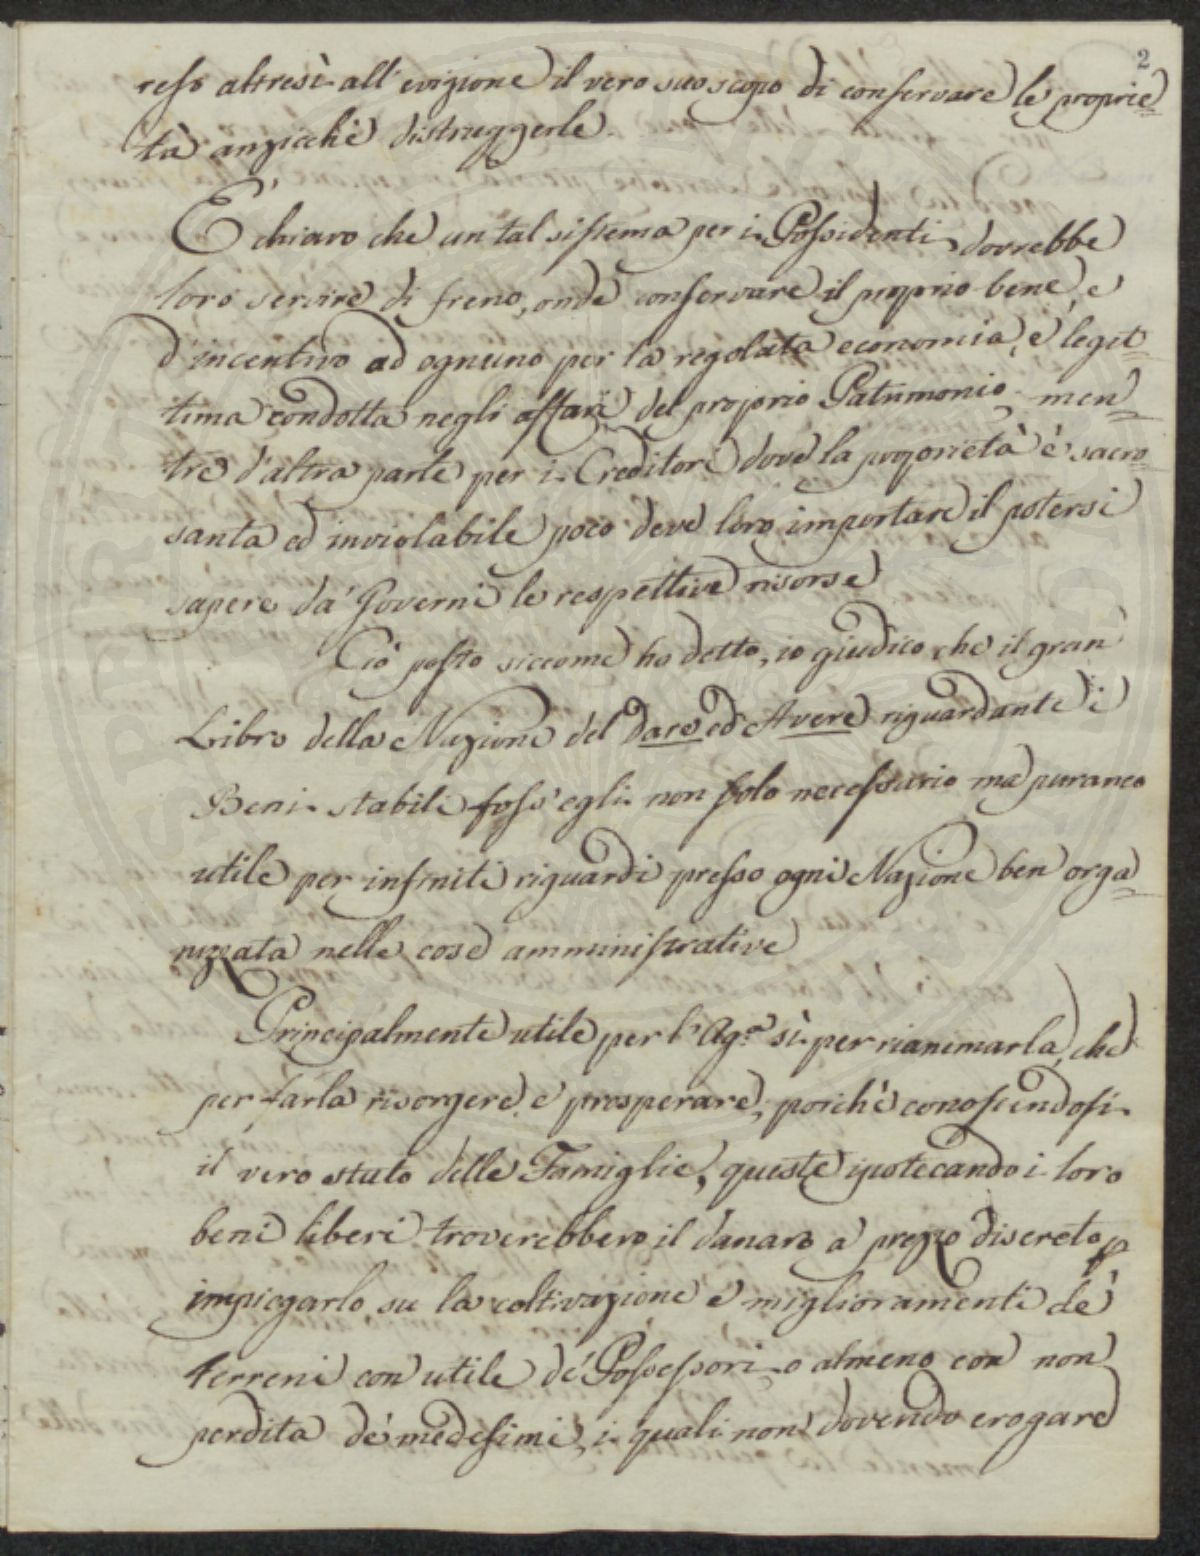 2
resso altresì all'evizione il vero suo scopo di conservare le proprie=
tà anzicchè distruggerle.
È chiaro che un tal sistema per i Possidenti dovrebbe
loro servire di freno, onde conservare il proprio bene, e
d'incentivo ad ognuno per la regolata economia, e legit=
tima condotta negli affari del proprio Patrimonio men=
tre d'altra parte per i Creditori dove la proprietà è sacro=
santa ed inviolabile poco deve loro importare il potersi
sapere da' Governi le respettive risorse
Ciò posto siccome ho detto, io giudico che il gran
Libro della Nazione del Dare ed Avere riguardante i
Beni stabili foss'egli non solo necessario ma puranco
utile per infiniti riguardi presso ogni Nazione ben orga=
nizzata nelle cose amministrative
Principalmente utile per l'Ag.ª sì per rianimarla, che
per farla risorgere e prosperare, poichè conoscendosi
il vero stato delle Famiglie, queste ipotecando i loro
beni liberi troverebbero il danaro a prezzo discreto p
impiegarlo su la coltivazione e miglioramenti de'
terreni con utile de' Possessori, o almeno con non
perdita de' medesimi, i quali non dovendo erogare